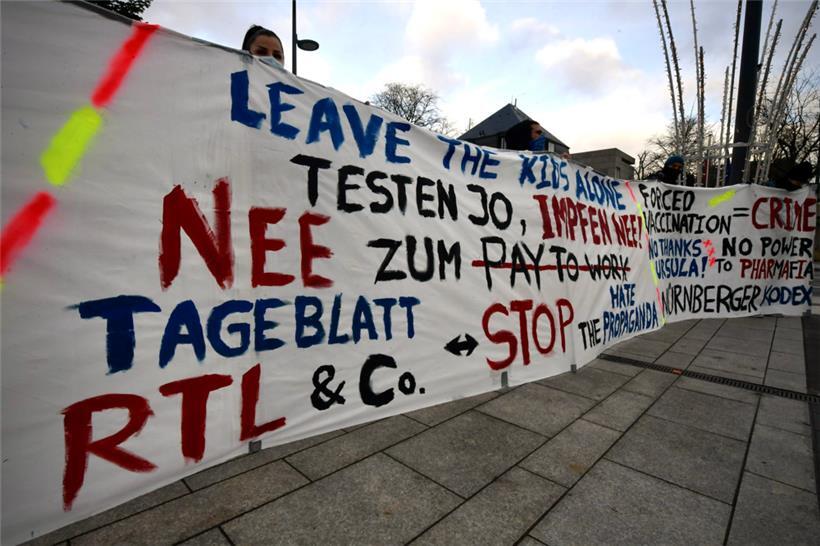 LEAVE THE KIDS ALONE
TESTEN JO, IMPFEN NEE!
NEE ZUM PAY TO WORK
TAGEBLATT
RTL & Co.
↔ STOP THE HATE PROPAGANDA
FORCED VACCINATION = CRIME
NO THANKS URSULA!
NO POWER TO PHARMAFIA
NÜRNBERGER KODEX